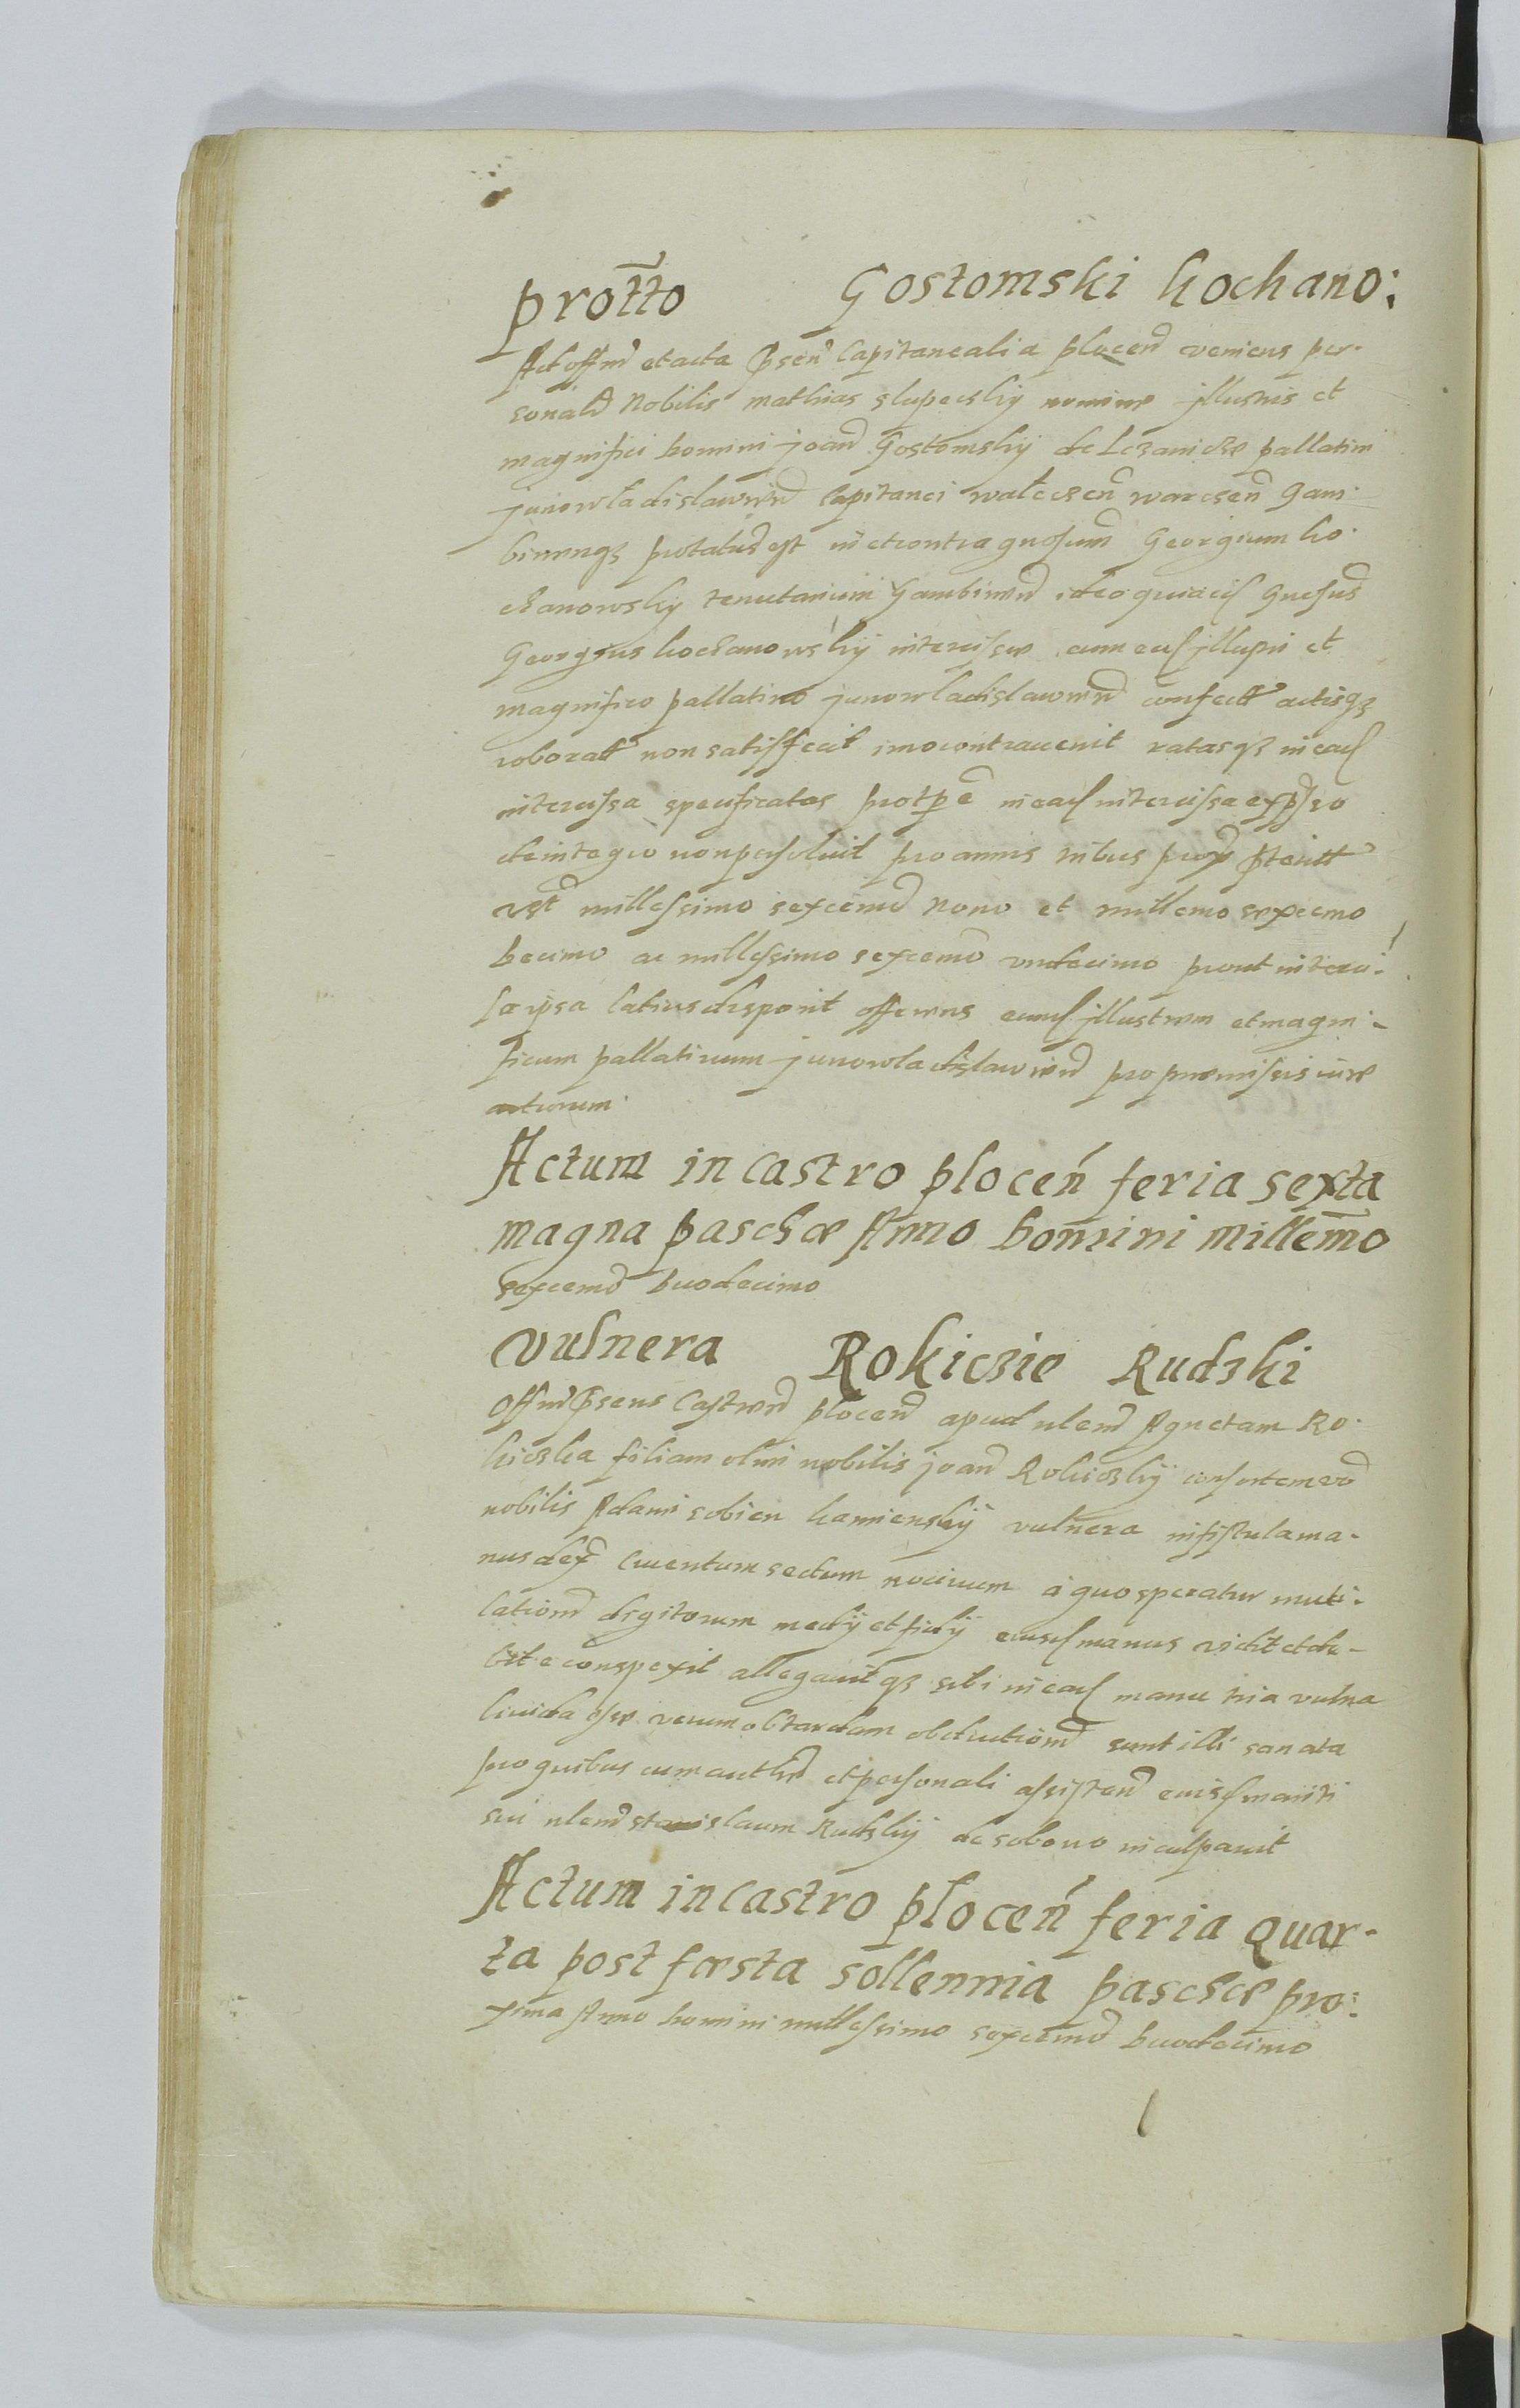 prot̃to Gostomski Kochano:
Ad offm̃ et acta p̃sen̄ Capitanealia plocen̄ veniens per-
sonalr̄ Nobilis Mathias Slupeczkij nomine jllustris et
magnifici Domini joan̄ Gostomskij de Lezanicze pallatini
junowladislawien̄ Capitanei walecsen̄ warcsen̄ Gam-
binenqʒ protatus est in et contra gnosum̄ Georgium Ko-
chanowsky tenutarium Gambinen̄ ideo quia id Gnosus̄
Georgius Kochanowskij intercisæ cum eod jllustri et
magnifico pallatino junowladislawien̄ confectæ actisqʒ
roboratæ non satisfecit imo contravenit ratasqʒ in ead
intercisa specificatas pro tp̄e in ead intercisa exp̃sso
de integro non persolvit pro annis tribus prox̄ p̃terit̄
vt̄ millesimo sexcenmo Nono et millemo sexcenmo
Decimo ac millesimo sexcenmo undecimo prout interci-
sa ipsa latius disponit offerens eund jllustrem et magni-
ficum pallatinum junowladislawien̄ pro præmissis iure
acturum
Actum in Castro plocen̄ feria sexta
magna paschæ Anno Domini Millem̄o
sexcenmo Duodecimo
Vulnera Rokiczie Rudzki
Offm̄ p̃sens Castren̄ plocen̄ apud nlem̄ Agnetam Ro-
kiczka filiam olim nobilis joan̄ Rokiczkij consortem vo
nobilis Adami sobien Kamienskij vulnera in fistula ma-
nus dex̄ cruentum sectum nocivum a quo speratur muti-
lation̄ digitorum medij et eiusd manus vidit et du-
bite conspexit allegavitqʒ sibi in ead manu tria vulna
livida esse verum ob tardam obductionē sunt illi sanata
pro quibus cum auth̄ et personali assisten̄ eiusd mariti
sui nlem̄ stanislaum Rudzkij de sobowo inculpavit
Actum in Castro plocen̄ feria quar-
ta post fæsta sollennia paschæ pro:
xima Anno Domini millesimo sexcenmo Duodecimo